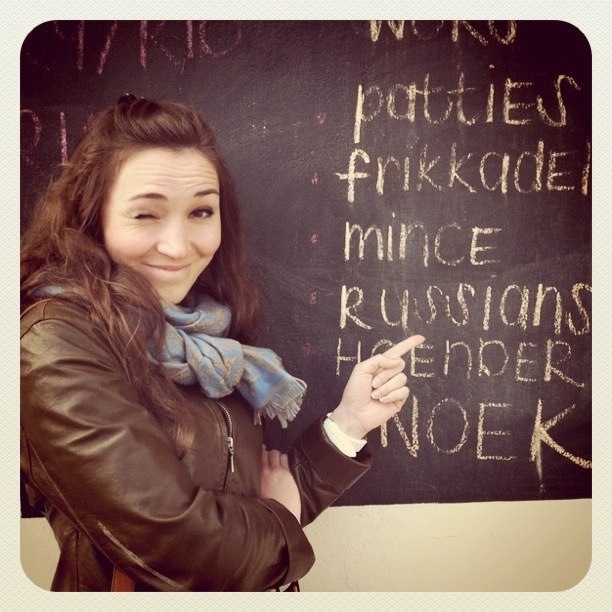 WORS
patties
frikkadel
mince
RUSSIANS
HOENDER
NOEK